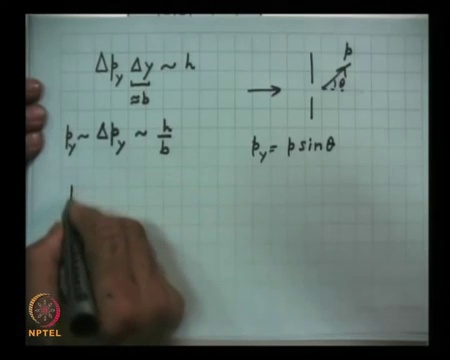 Δp_y Δy ~ h
≈b
p_y ~ Δp_y ~ h/b
p
θ
p_y = p sinθ
NPTEL